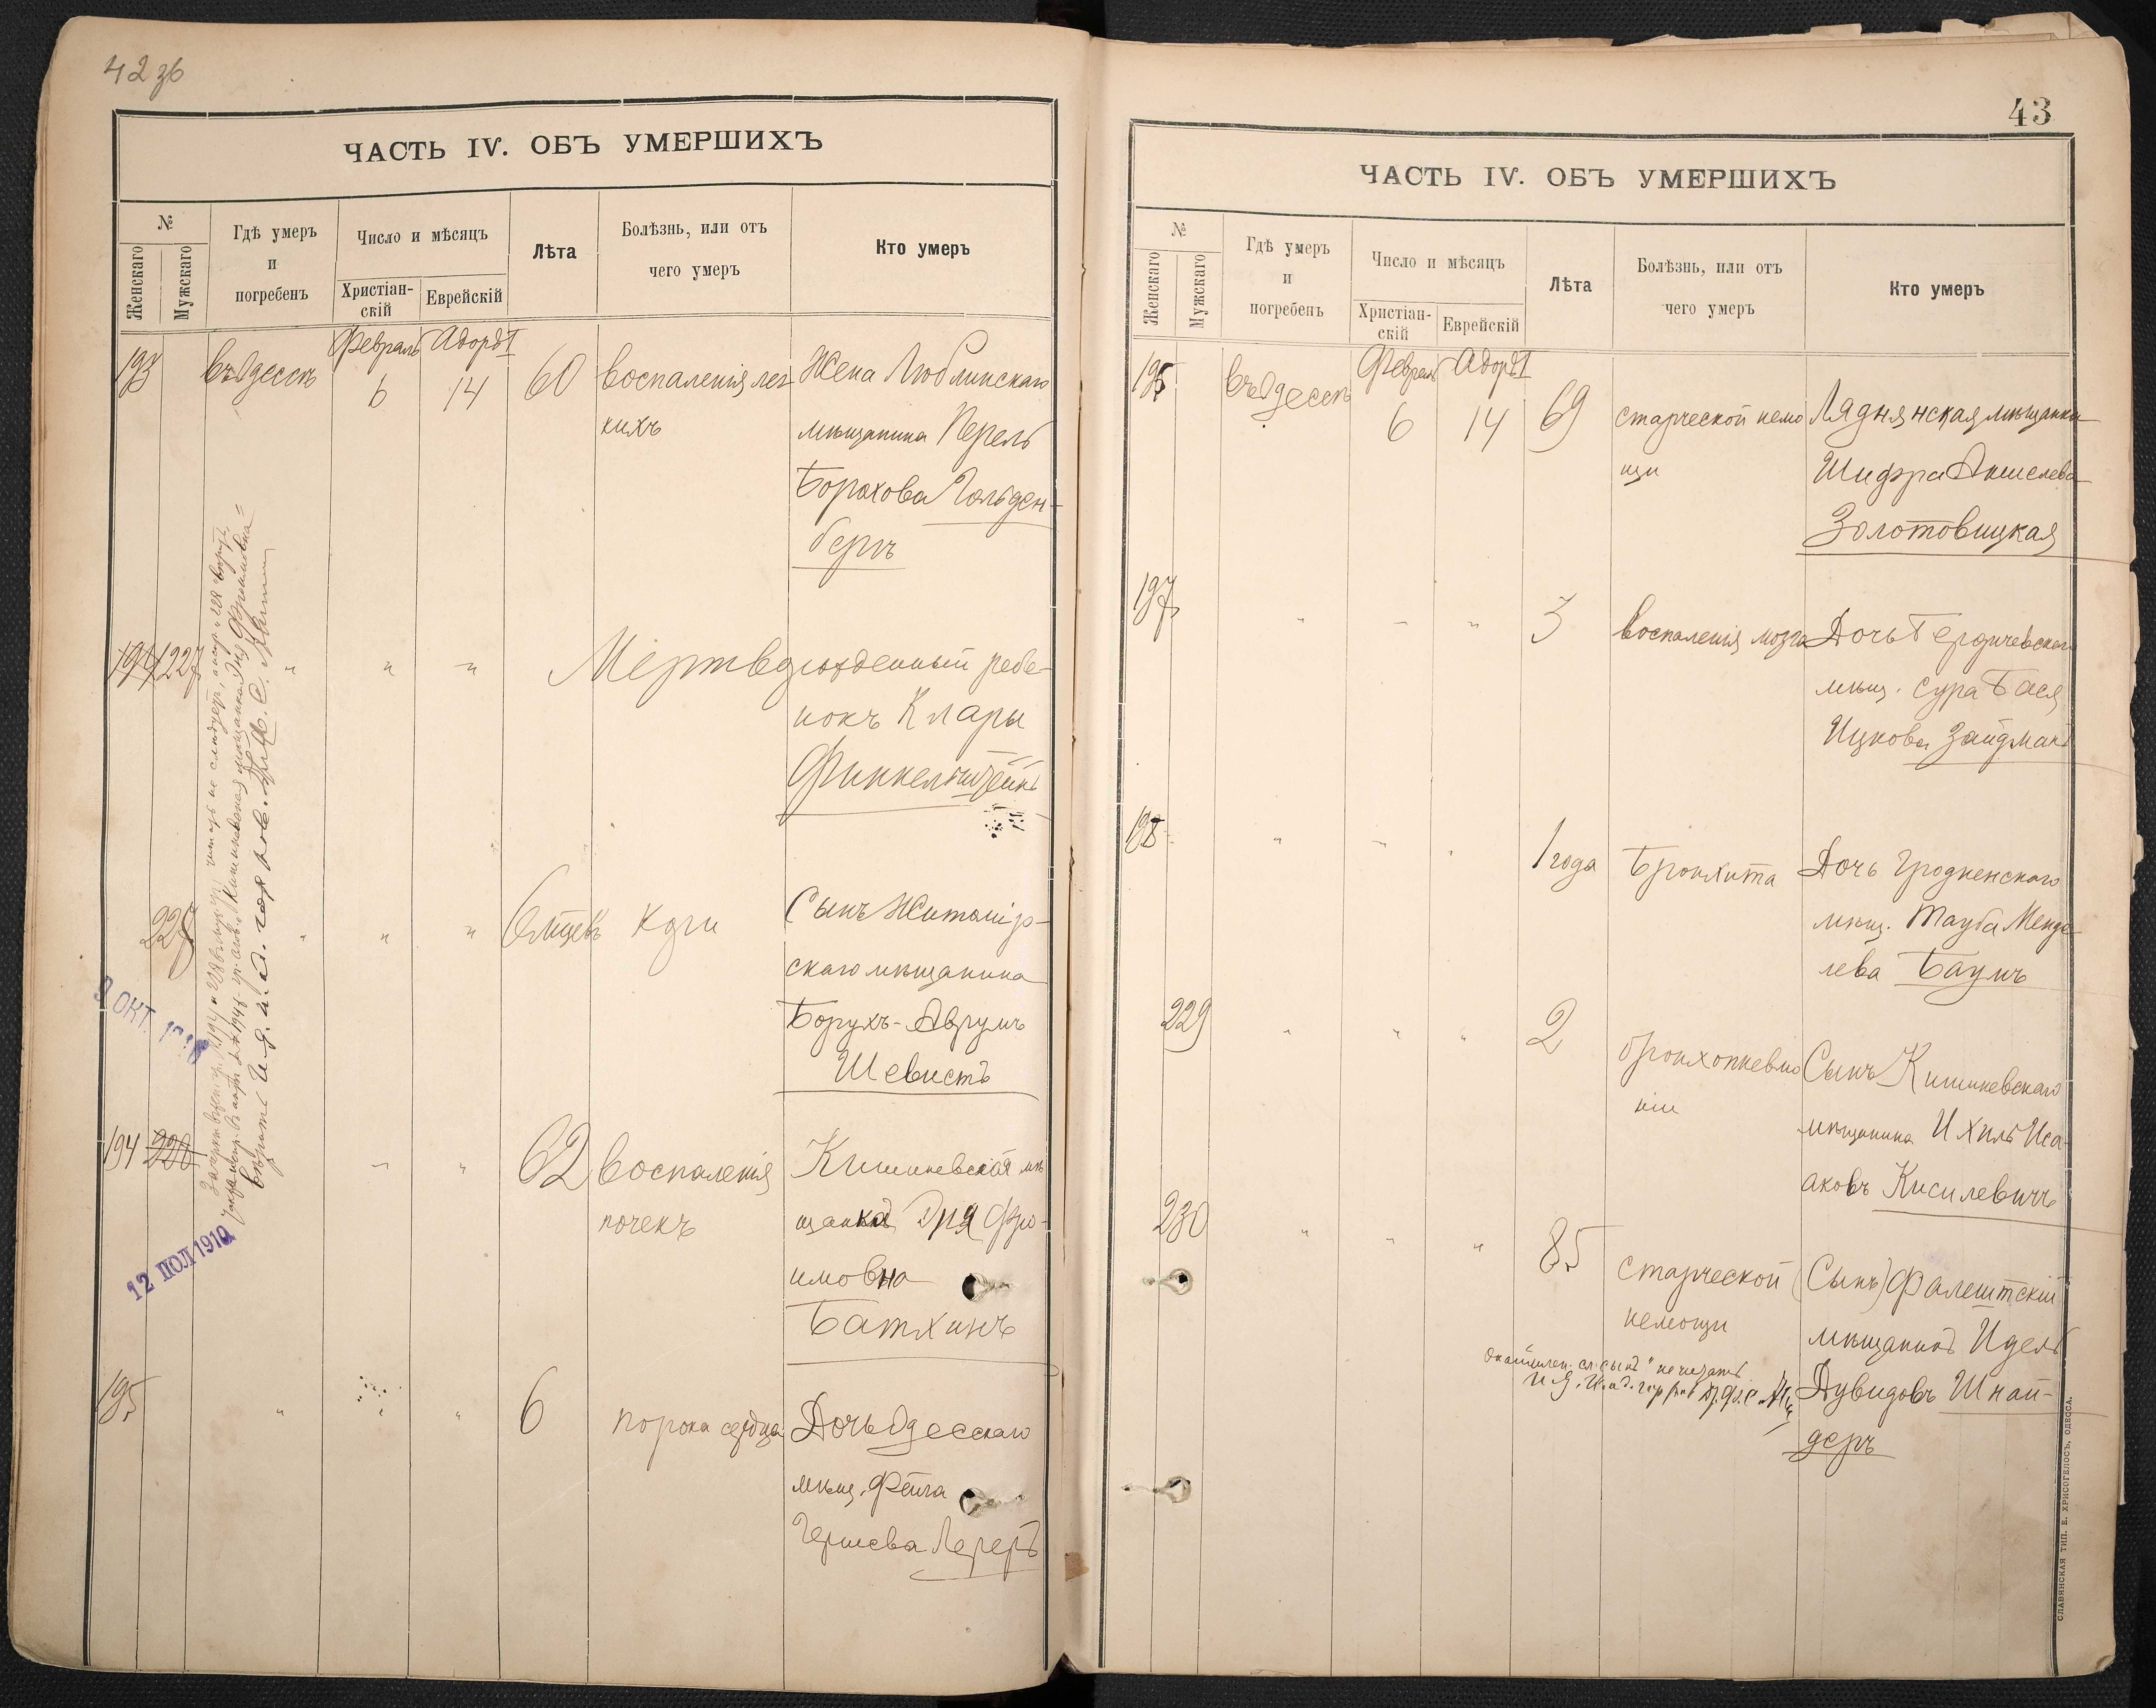 42 зв
ЧАСТЬ IV. ОБЪ УМЕРШИХЪ
№
Женскаго
Мужскаго
Гдѣ умеръ
и
погребенъ
Число и мѣсяцъ
Христіан-
скій
Еврейскій
Лѣта
Болѣзнь, или отъ
чего умеръ
Кто умеръ
Февраль Адоръ I
193 въ Одессѣ 6 14 60 воспаленія лег
кихъ
Жена Люблинскаго
мѣщанина Перель
Борохова Гольден-
бергъ
194 227 " " " Мертворожденный ребе-
нокъ Клары
Финкельштейнъ
228 " " " 6 мцевъ Кори
Сынъ Житомір-
скаго мѣщанина
Борухъ-Аврумъ
Шевистъ
194 228 " " 62 воспаленія
почекъ
Кишиневская мѣ
щанка Эня Фро-
имовна
Батхинъ
195 " " " 6 порока сердца
Дочь Одесскаго
мѣщ. Фейга
Гершева Лереръ
12 ІЮЛ 1910
9 ОКТ.
43
ЧАСТЬ IV. ОБЪ УМЕРШИХЪ
№
Женскаго
Мужскаго
Гдѣ умеръ
и
погребенъ
Число и мѣсяцъ
Христіан-
скій
Еврейскій
Лѣта
Болѣзнь, или отъ
чего умеръ
Кто умеръ
Февраль Адоръ I
въ Одессѣ 6 14 69 старческой немо
щи
Ляднянская мѣщанка
Шифра Аншелева
Золотовицкая
197 " " " 3 воспаленія мозга
Дочь Бердичевскаго
мѣщ. Сура Бася
Ицкова Зайдманъ
198 " " " 1 года Бронхита
Дочь Гродненскаго
мѣщ. Тауба Менде
лева Баумъ
229 " " " 2 бронхопневмо
ніи
Сынъ Кишиневскаго
мѣщанина Ихиль Иса-
аковъ Кисилевичъ
230 " " " 85 старческой
немощи
(Сынъ) Фалештскій
мѣщанинъ Идель
Дувидовъ Шнай-
деръ
СЛАВЯНСКАЯ ТИП. Е. ХРИСОГЕЛОСЪ, ОДЕССА.